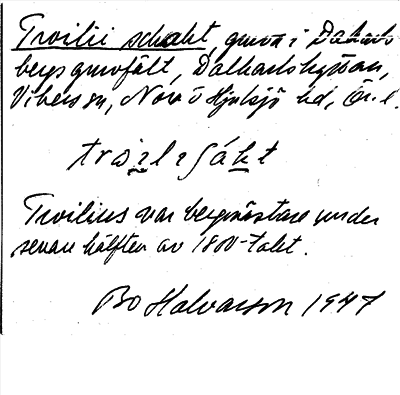 Troilii schakt, gruva i Dalkarls-
bergs gruvfält, Dalkarlshyttan,
Vikers sn, Nora o Hjulsjö hd, Ör. l.
Troilius var bergmästare under
senare hälften av 1800-talet.
Bo Halvarson 1947